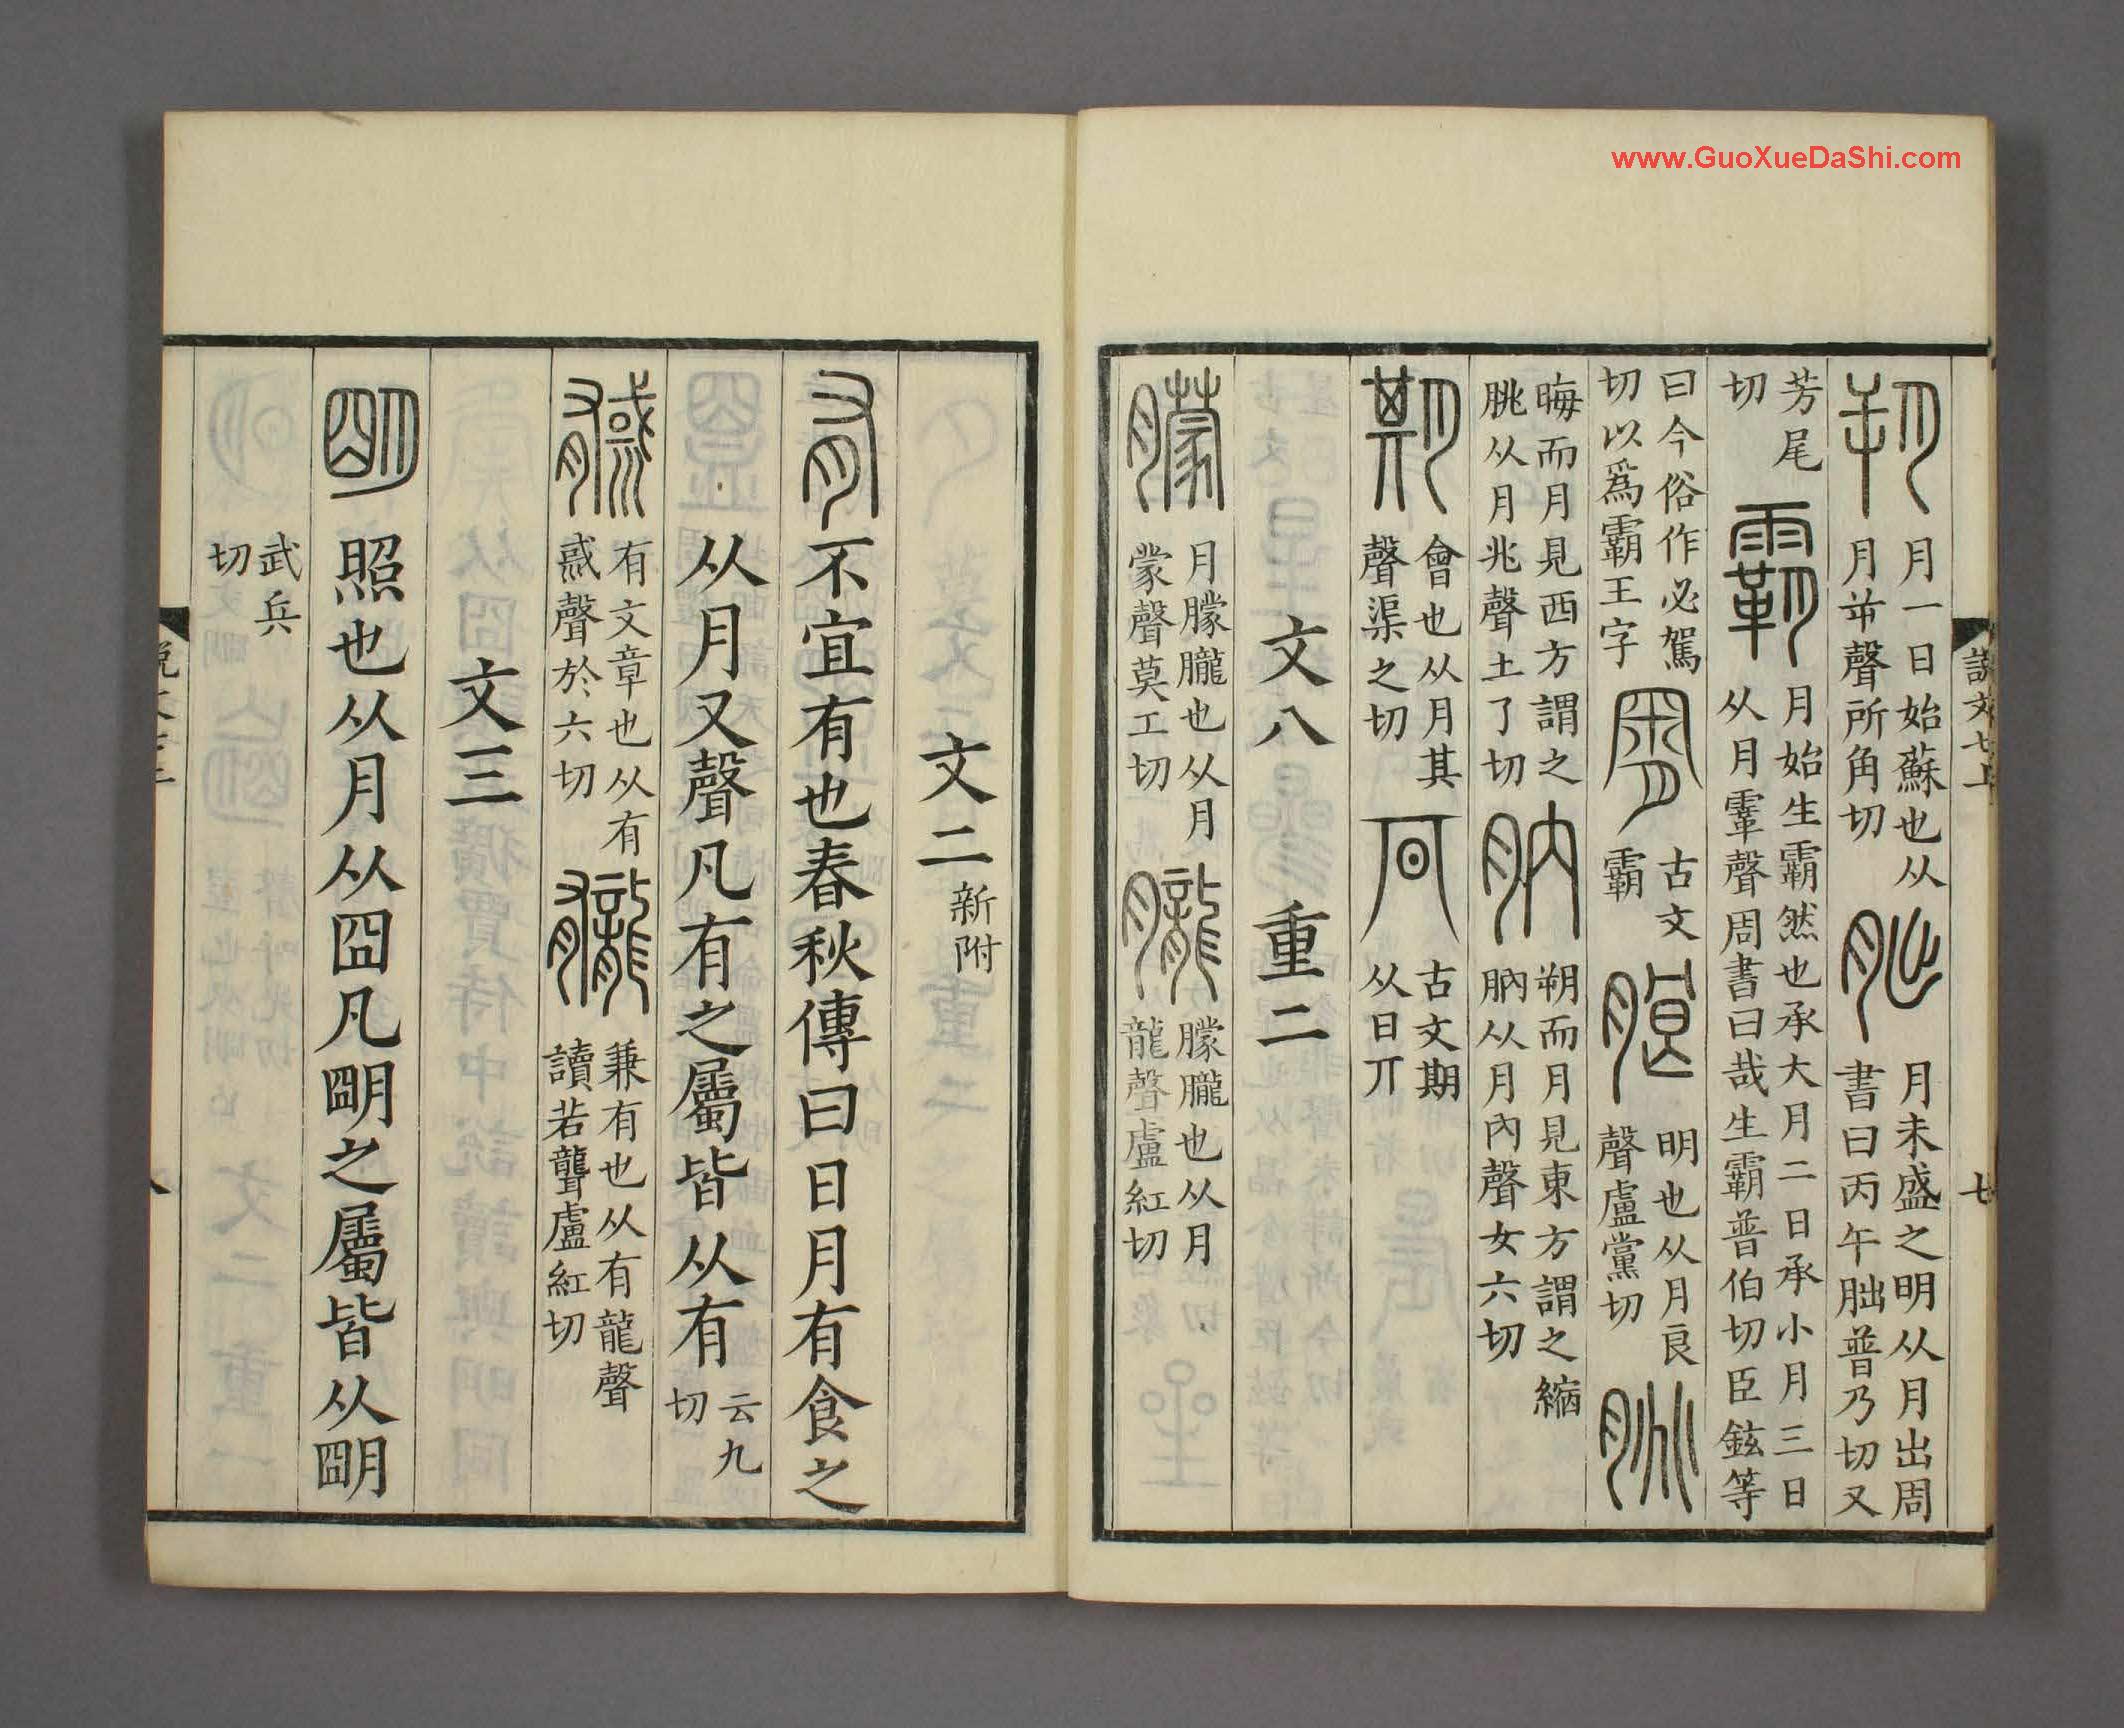 www.GuoXueDaShi.com
說文七上 七
朔月一日始蘇也从月屰聲所角切朏月未盛之明从月出周書曰丙午朏普乃切又
芳尾切霸月始生霸然也承大月二日承小月三日从月䨣聲周書曰哉生霸普伯切臣鉉等
曰今俗作必駕切以爲霸王字古文霸朖明也从月良聲盧黨切朓
晦而月見西方謂之朓从月兆聲土了切肭朔而月見東方謂之縮肭从月內聲女六切
期會也从月其聲渠之切古文期从日丌
文八 重二
朦月朦朧也从月蒙聲莫工切朧朦朧也从月龍聲盧紅切
文二新附
有不宜有也春秋傳曰日月有食之
从月又聲凡有之屬皆从有云九切
有文章也从有惑聲於六切龓兼有也从有龍聲讀若聾盧紅切
文三
朙照也从月从囧凡朙之屬皆从朙
武兵切